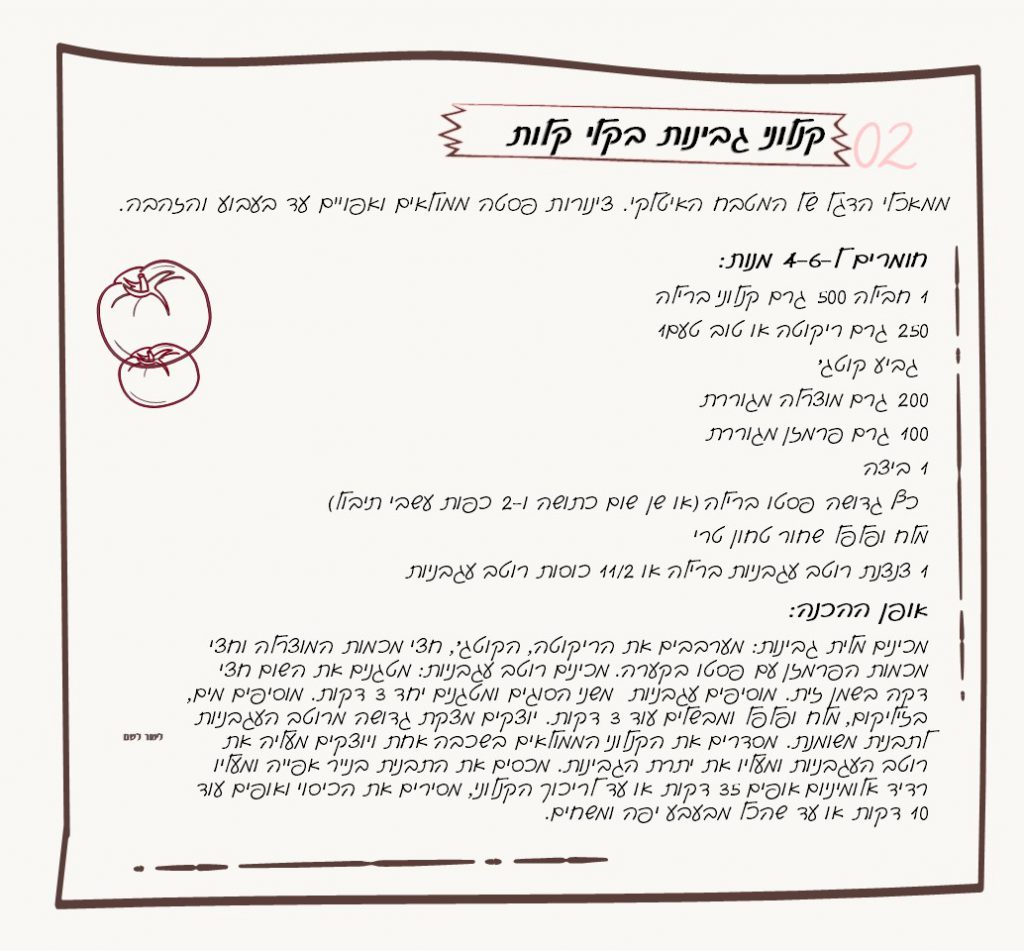 02
קנלוני גבינות בקלי קלות
ממאכלי הדגל של המטבח האיטלקי. צינורות פסטה ממולאים ואפויים עד בעבוע והזהבה.
חומרים ל-4-6 מנות:
1 חבילה 500 גרם קנלוני ברילה
250 גרם ריקוטה או טוב טעם1
גביע קוטג'
200 גרם מוצרלה מגוררת
100 גרם פרמזן מגוררת
1 ביצה
כף גדושה פסטו ברילה (או שן שום כתושה ו-2 כפות עשבי תיבול)
מלח ופלפל שחור טחון טרי
1 צנצנת רוטב עגבניות ברילה או 11/2 כוסות רוטב עגבניות
אופן ההכנה:
מכינים מלית גבינות: מערבבים את הריקוטה, הקוטג', חצי מכמות המוצרלה וחצי
מכמות הפרמזן עם פסטו בקערה. מכינים רוטב עגבניות: מטגנים את השום חצי
דקה בשמן זית. מוסיפים עגבניות משני הסוגים ומטגנים יחד 3 דקות. מוסיפים מים,
בזיליקום, מלח ופלפל ומבשלים עוד 3 דקות. יוצקים מצקת גדושה מרוטב העגבניות
לתבנית משומנת. מסדרים את הקנלוני הממולאים בשכבה אחת ויוצקים מעליה את
רוטב העגבניות ומעליו את יתרת הגבינות. מכסים את התבנית בנייר אפייה ומעליו
רדיד אלומיניום אופים 35 דקות או עד לריכוך הקנלוני, מסירים את הכיסוי ואופים עוד
10 דקות או עד שהכל מבעבע יפה ומשחים.